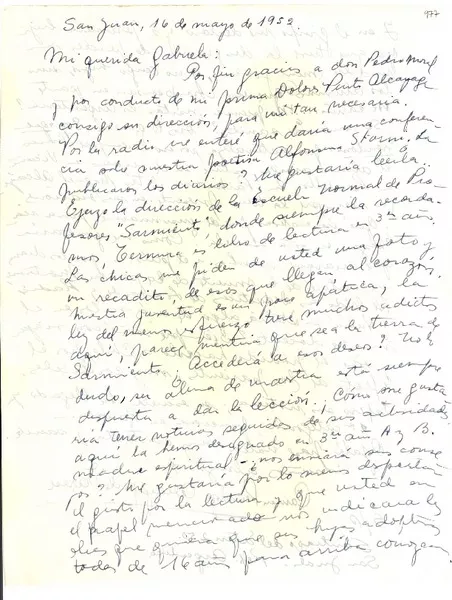 977
San Juan, 16 de mayo de 1952.
Mi querida Gabriela:
Por fin gracias a don Pedro
y por conducto de mi prima Dolores Pinto Alcayaga
consigo su dirección, para mi tan necesaria.
Por la radio me enteré que daría una conferen-
cia sobre nuestra poetisa Alfonsina Storni. La
publicarán los diarios? Me gustaría leerla.
Ejerzo la dirección de la Escuela Normal de Pro-
fesores "Sarmiento" donde siempre la recorda-
mos, Ternura es libro de lectura en 3er año.
Las chicas me piden de usted una foto y
un recadito, de esos que llegan al corazón,
nuestra juventud es un poco apática, la
ley del menor esfuerzo tiene muchos adictos
aquí, parece mentira que sea la tierra de
Sarmiento. Accederá a esos deseos? No lo
dudo, su alma de maestra está siempre
dispuesta a dar la lección. ¡Cómo me gusta
ría tener noticias seguidas de sus actividades
aquí la hemos designado en 3er año A y B.
madre espiritual - ¿nos enviará sus conse
jos? Me gustaría por lo menos despertar
el gusto por la lectura y que usted en
el papel mencionado nos indicara les
que quiere que sus hijas adoptivas
todas de 16 años para arriba conozcan